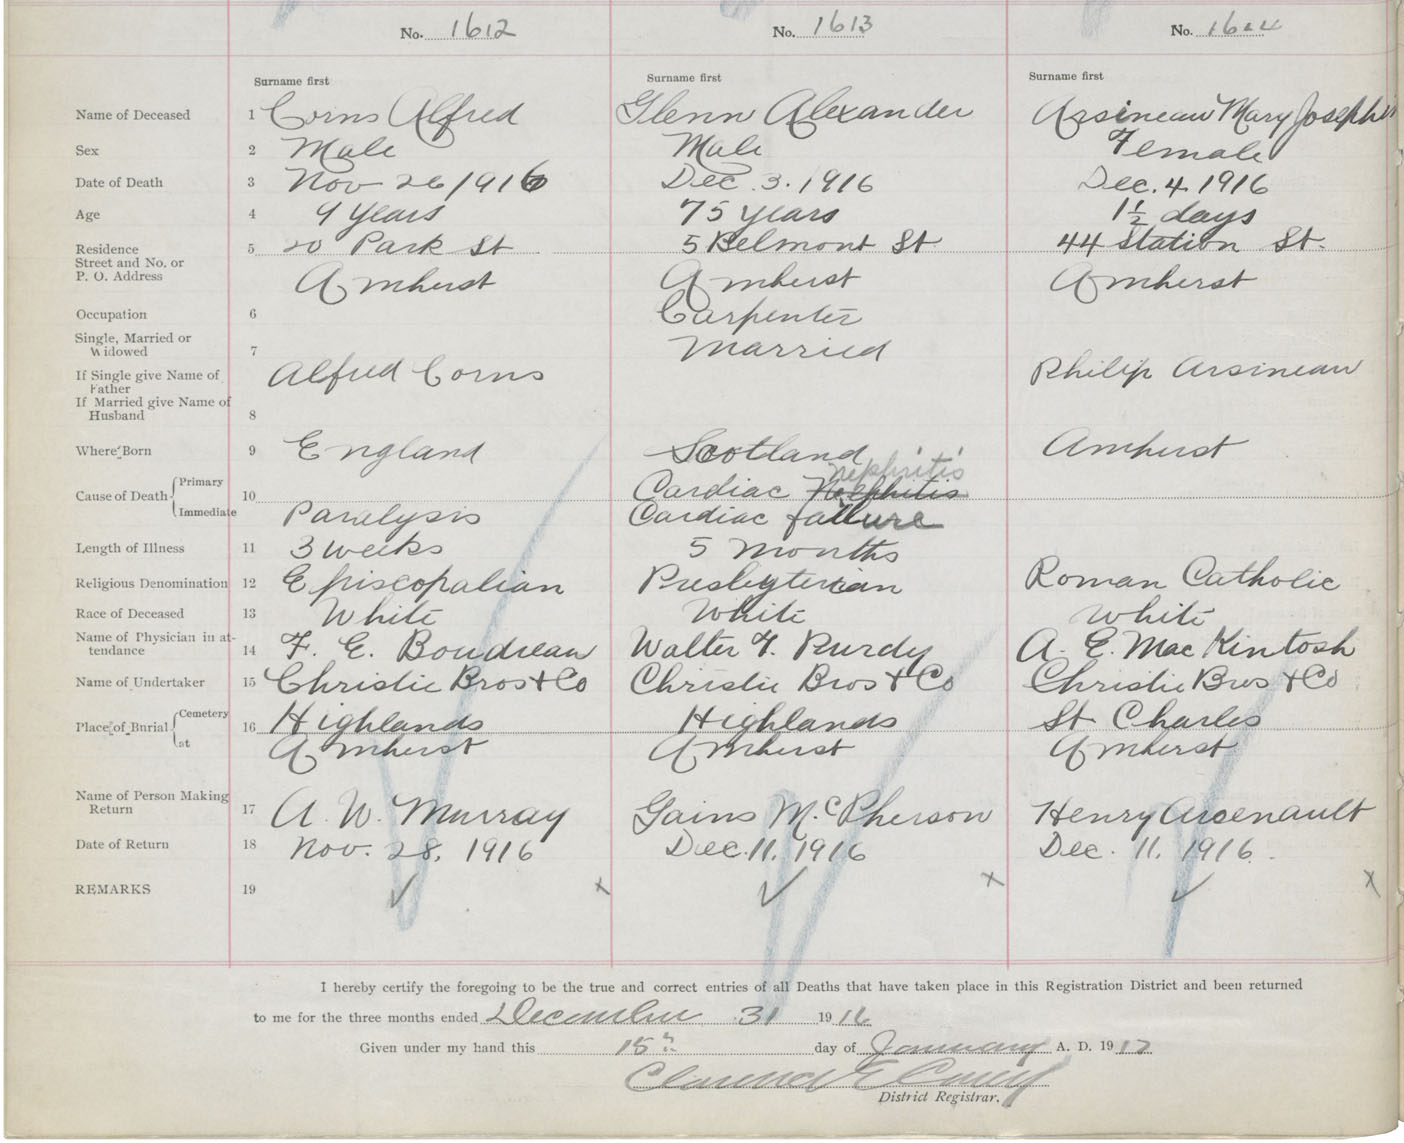 No. 1612 No. 1613 No. 1614
Surname first Surname first Surname first
Name of Deceased 1 Corns Alfred Glenn Alexander Arsineau Mary Josephin
Sex 2 Male Male Female
Date of Death 3 Nov 26 1916 Dec. 3. 1916 Dec. 4 1916
Age 4 9 Years 75 years 1½ days
Residence 5 20 Park St 5 Belmont St 44 Station St.
Street and No. or
P. O. Address Amherst Amherst Amherst
Occupation 6 Carpenter
Single, Married or
Widowed 7 Married
If Single give Name of Alfred Corns Philip Arsineau
Father
If Married give Name of
Husband 8
Where Born 9 England Scotland Amherst
nephritis
Primary
Cause of Death 10 Cardiac Nephitis
Immediate Paralysis Cardiac failure
Length of Illness 11 3 weeks 5 months
Religious Denomination 12 Episcopalian Presbyterian Roman Catholic
Race of Deceased 13 White White White
Name of Physician in at-
tendance 14 F. E. Boudreau Walter F. Purdy A. E. MacKintosh
Name of Undertaker 15 Christie Bros & Co Christie Bros & Co Christie Bros & Co
Cemetery
Place of Burial 16 Highlands Highlands St Charles
at Amherst Amherst Amherst
Name of Person Making
Return 17 A. W. Murray Gains McPherson Henry Arsenault
Date of Return 18 Nov. 28, 1916 Dec. 11, 1916 Dec. 11, 1916.
REMARKS 19 ✓ x ✓ x ✓ x
I hereby certify the foregoing to be the true and correct entries of all Deaths that have taken place in this Registration District and been returned
to me for the three months ended December 31 1916
Given under my hand this 15th day of January A. D. 1917
Clarence E
District Registrar.